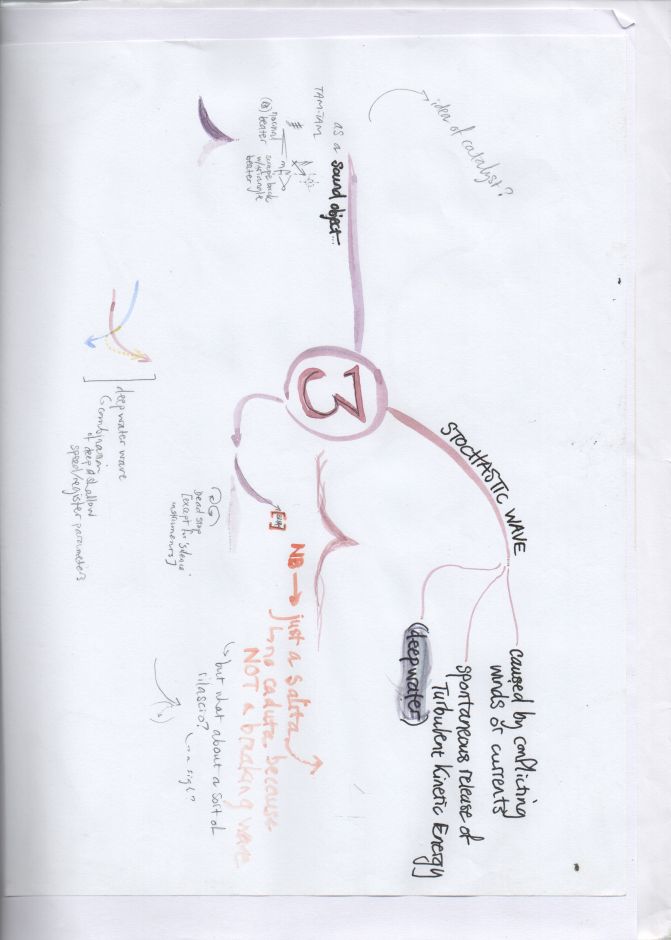 idea of catalyst?
as a sound object...
TAM-TAM
normal
beater
scrape back
w/ triangle
beater
mf
3
STOCHASTIC WAVE
caused by conflicting
winds or currents
spontaneous release of
Turbulent Kinetic Energy
(deepwater)
NB → just a salita
↳ no caduta because
NOT a breaking wave
↳ but what about a sort of
rilascio?
↳ a sigh?
Dead stop
[except for 'silence'
instruments]
deepwater wave
(combination
of deep & shallow
speed/register parameters